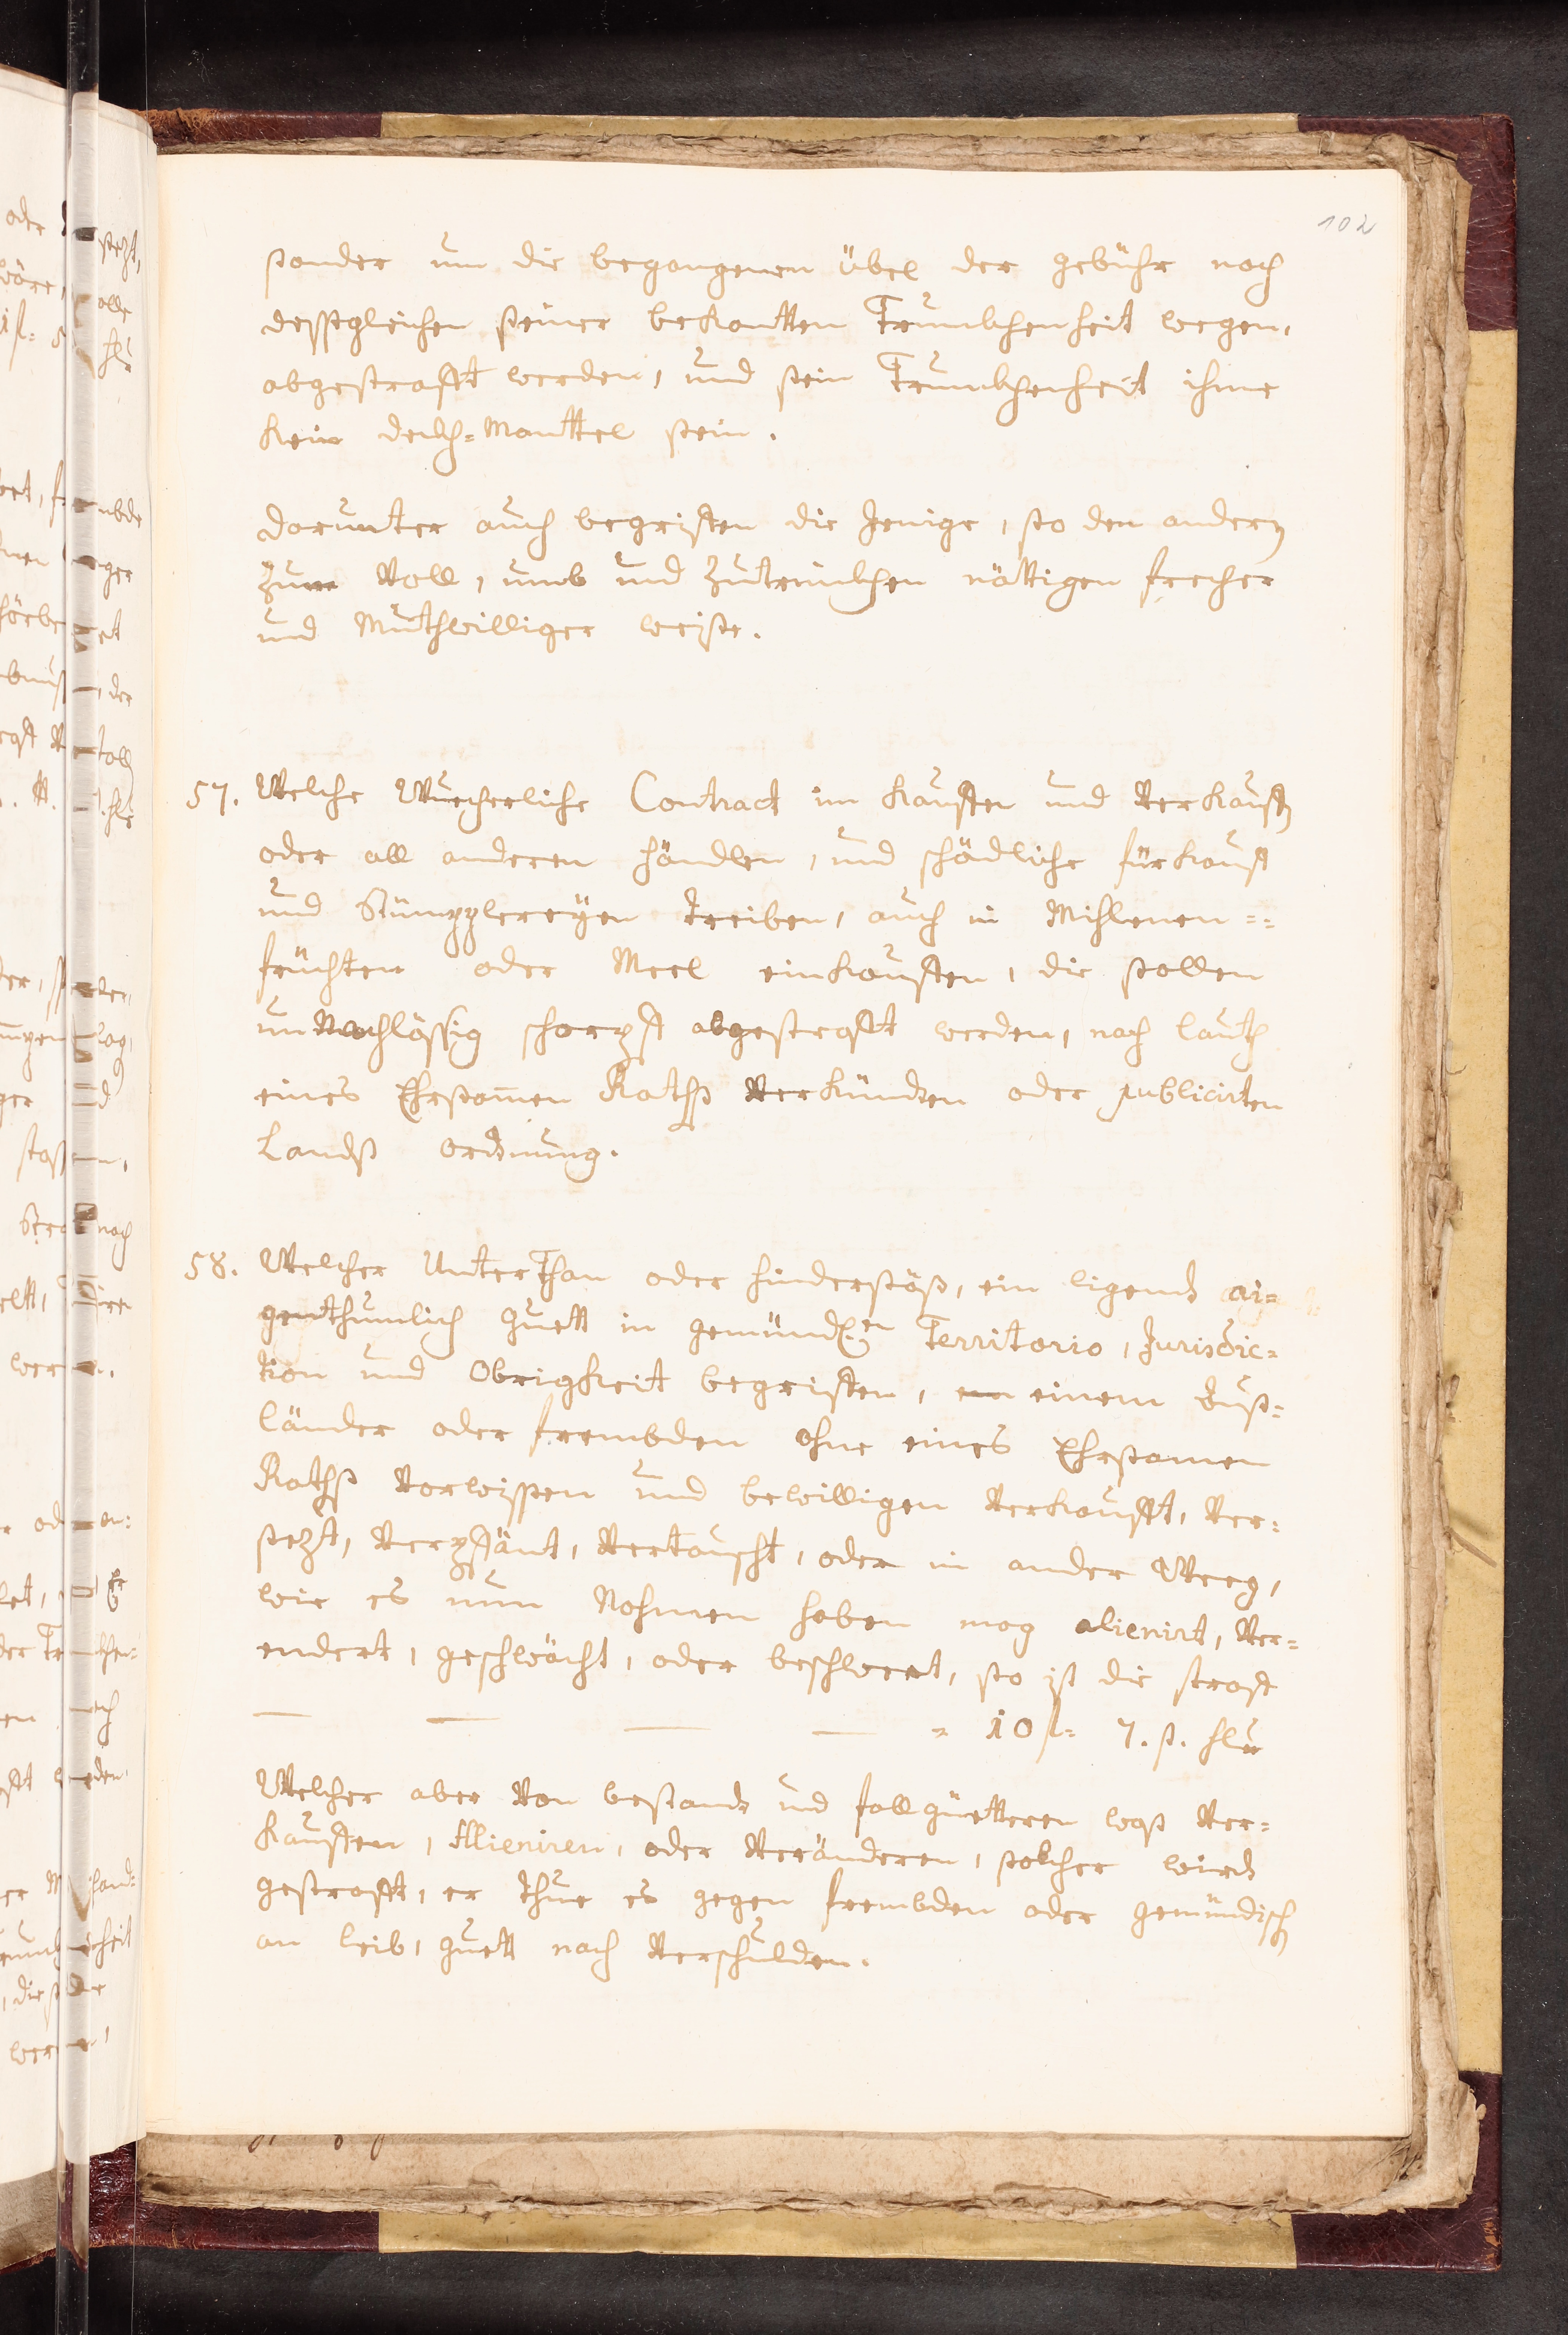 102
sonder um die begangenen übel der gebühr nach
dessgleichen seiner bekantten Trunckhenheit wegen,
abgestrafft werden, und sein Trunckhenheit ihme
kein deckh=Manttel sein.
darunter auch begriffen die Jenige, so den andern
zum Voll, umb und Zutrinckhen nöttigen frecher
und Muthwilliger weise.
57. Welche Wucherliche Contract im kauffen und Verkauffen
oder all anderen händlen, und schädliche fürkauff
und Stümpplereyen treiben, auch in Mihlenen ==
früchten oder Meel einkauffen, die sollen
unNachlässig scharpff abgestrafft werden, nach lauth
eines Ehrsamen Rathss Verkündten oder publicirten
Landss ordnung.
58. Welcher UnterThan oder hindersäss, ein ligendt ai=
genthumlich Guett in gemündt.en Territorio, Jurisdic=
tion und Obrigkheit begriffen, einem Auss=
länder oder frembden ohne eines Ehrsamen
Rathss Vorwissen und bewilligen Verkaufft, Ver=
sezt, Verpfänt, Vertauscht, oder in ander Weeg,
wie es nun Nahmen haben mag alienirt, Ver=
endert, geschwächt, oder beschwert, so ist die straff
— — — — = 10 fl= 7. ß. hlr
Welcher aber Von bestandt und fallgüetteren wass Ver=
kauffen, Alieniren, oder Veränderen, solcher wirdt
gestrafft, er thue es gegen frembden oder gemündisch
an leib, guett nach Verschulden.